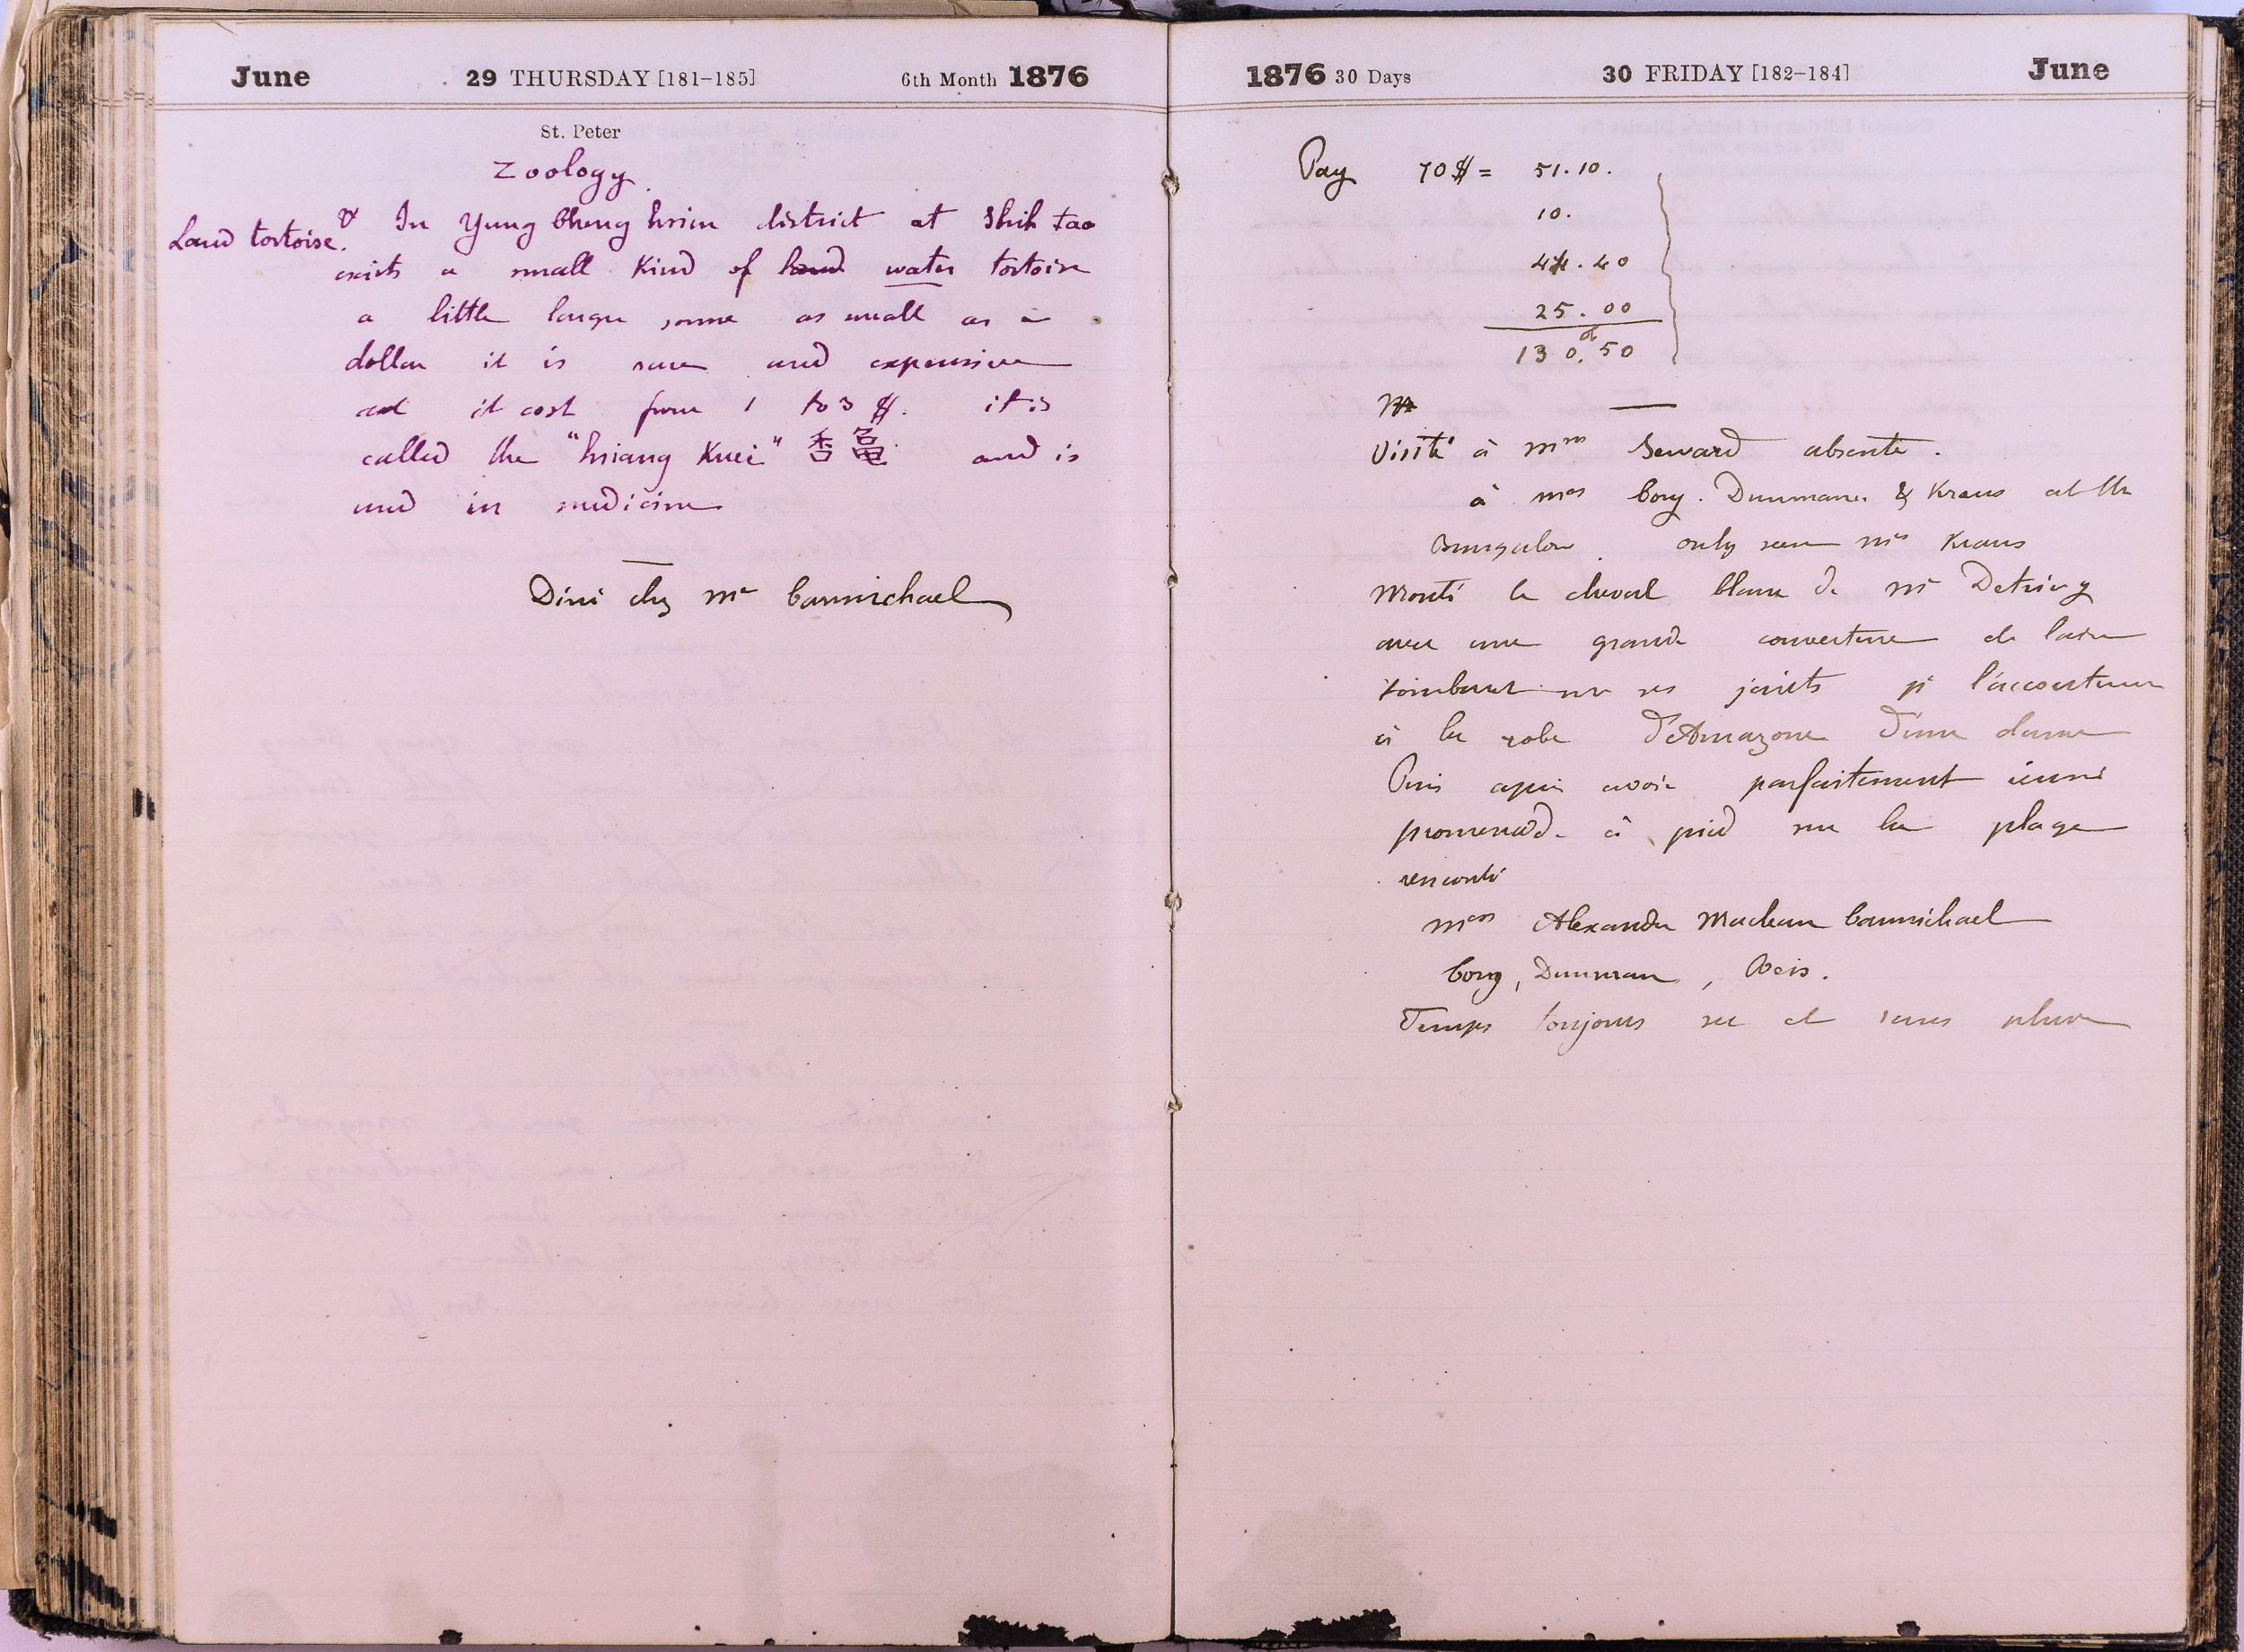 June 29 THURSDAY [181-185] 6th Month 1876
St. Peter
Zoology.
Land tortoise. & In Yung Cheng hsien district at Shih tao
exists a small kind of land water tortoise
a little larger some as small as a
dollar it is rare and expensive
and it cost from 1 to 3 $. it is
called the "hsiang Kuei" 香龜 and is
used in medicine
Diné chez Mr Carmichael
1876 30 Days 30 FRIDAY [182-184] June
Pay 70 $ = 51.10.
10.
44.40
25.00
130.50
Visite à Mme Seward absente.
à Mes Cory. Dunman & Kraus at the
Bungalow. only seen Mrs Kraus
Monté le cheval blanc de Mr Detring
avec une grande couverture de laine
tombant sur ses jarrets je l'accoutume
à la robe d'Amazone d'une dame
Puis après avoir parfaitement réussi
promenade à pied sur la plage
rencontré
Mes Alexander Maclean Carmichael
Cory, Dunman,
Temps toujours sec et sans pluie